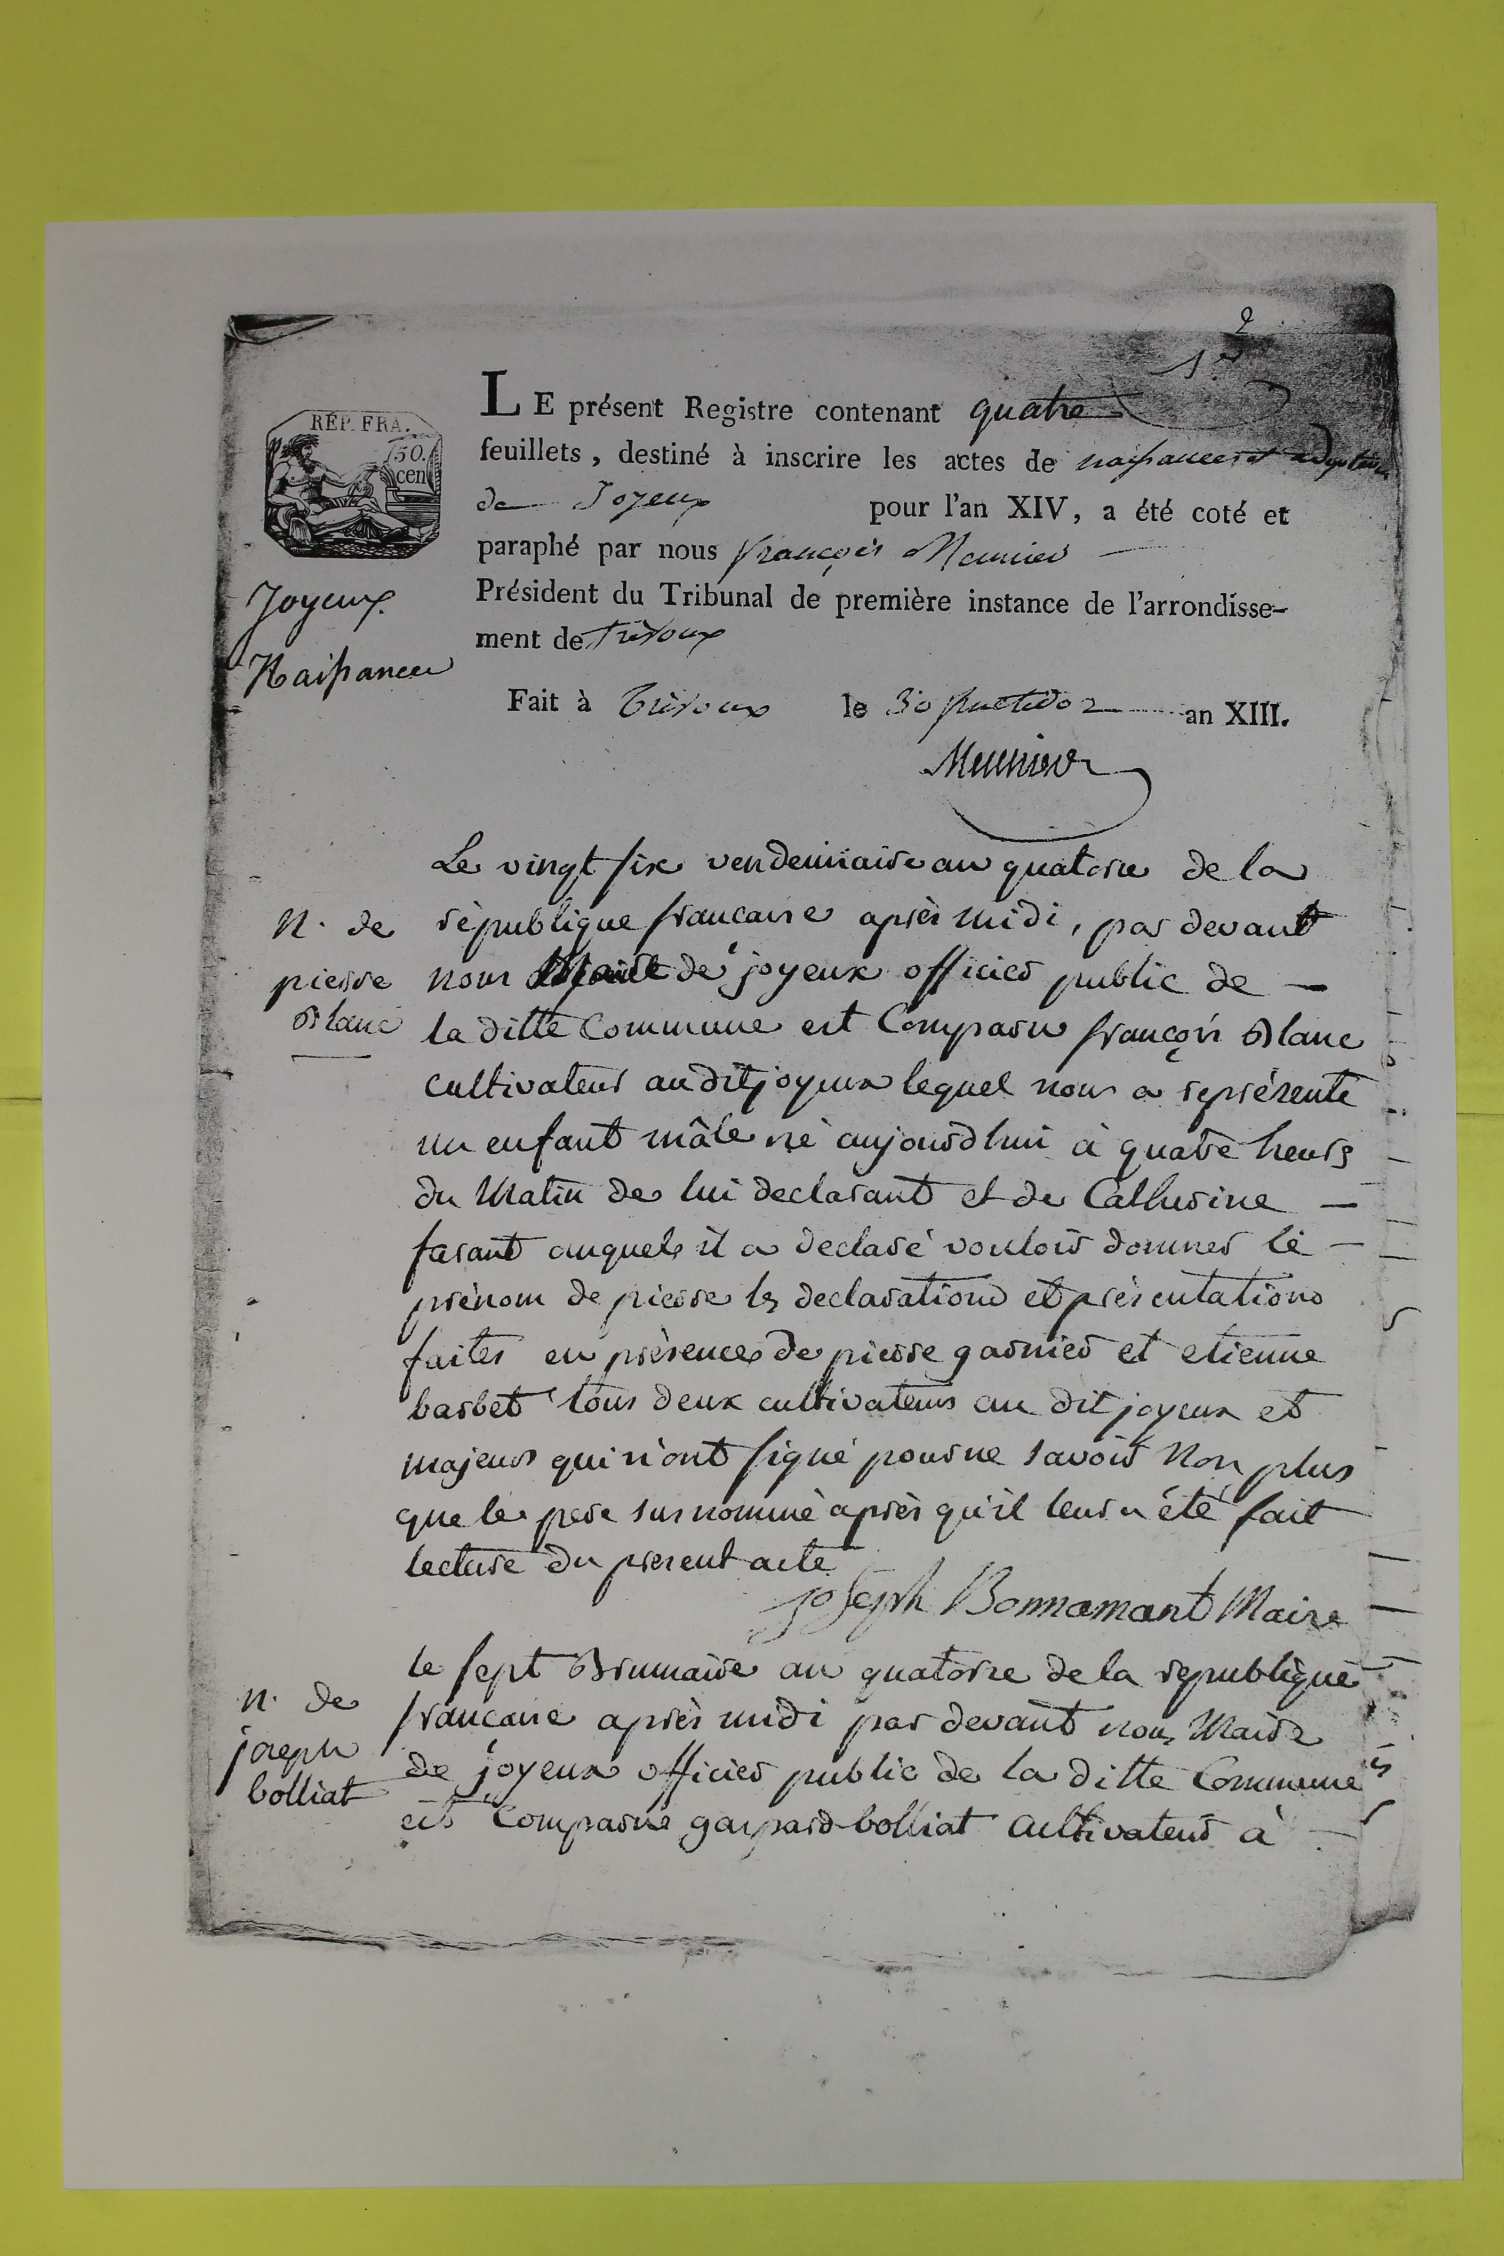 2
1er
LE présent Registre contenant quatre
RÉP. FRA.
50.
cen
feuillets, destiné à inscrire les actes de naissances et adoptions
de Joyeux pour l'an XIV, a été coté et
paraphé par nous françois Meunier
Joyeux
Président du Tribunal de première instance de l'arrondisse-
ment de trévoux
Naissances
Fait à Trévoux le 30 fructidor an XIII.
Meunier
Le vingt six vendemiaire an quatorze de la
N. de
république francaise après midi, par devant
pierre
nous Maire de joyeux officier public de
Blanc
la ditte Commune est Comparu françois Blanc
cultivateur au dit joyeux lequel nous a représenté
un enfant mâle né aujourdhui à quatre heurs
du Matin de lui declarant et de Catherine
farant auquels il a declaré vouloir donner le
prénom de pierre les declarations et présentations
faites en présences de pierre garnier et etienne
barbet tous deux cultivateurs au dit joyeux et
majeurs qui n'ont signé pour ne savoir Non plus
que le pere surnommé après qu'il leur a été fait
lecture du present acte
Joseph Bonnamant Maire
le sept Brumaire an quatorze de la republique
N. de
francaise après midi par devant nous Maire
joseph
de joyeux officier public de la ditte Commune
bolliat
est Comparu gaspard bolliat Cultivateur à